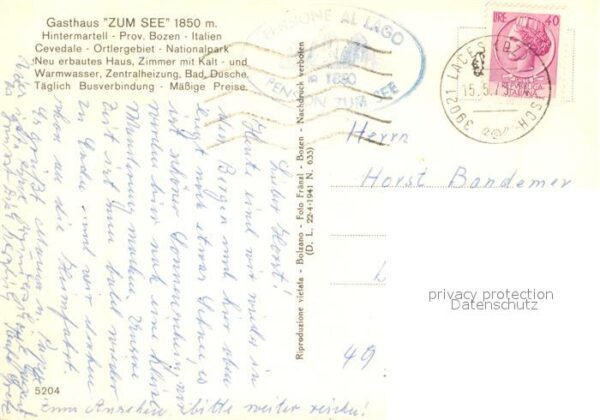 Gasthaus "ZUM SEE" 1850 m.
Hintermartell - Prov. Bozen - Italien
Cevedale - Ortlergebiet - Nationalpark
Neu erbautes Haus, Zimmer mit Kalt - und
Warmwasser, Zentralheizung, Bad, Dusche.
Täglich Busverbindung - Mäßige Preise.
PENSIONE AL LAGO
PENSION ZUM SEE
LIRE 40
REPUBBLICA
ITALIANA
39021 LACES (BZ)
15.5.7
Herrn
Horst Bandemer
49
Lieber Horst!
Heute sind wir wieder in
den Bergen und hier oben
liegt noch etwas Schnee, es
ist schöner Sonnenschein, wir
werden hier noch eine kleine
Wanderung machen. Unsere
Zeit ist dann bald wieder
zu Ende und wir denken
schon an die Heimfahrt.
Es grüßt
Riproduzione vietata - Bolzano - Foto Fränzl - Bozen - Nachdruck verboten
(D. L. 22-4-1941 N. 633)
5204
zum Ansehen, bitte weiter reichen!
privacy protection
Datenschutz